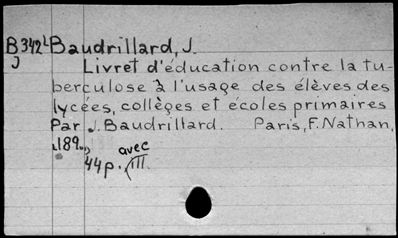 B342L Baudrillard, J.
J Livret d'éducation contre la tu-
berculose à l'usage des élèves des
lycées, collèges et écoles primaires
Par J. Baudrillard. Paris, F. Nathan,
189
44p. avec ill.